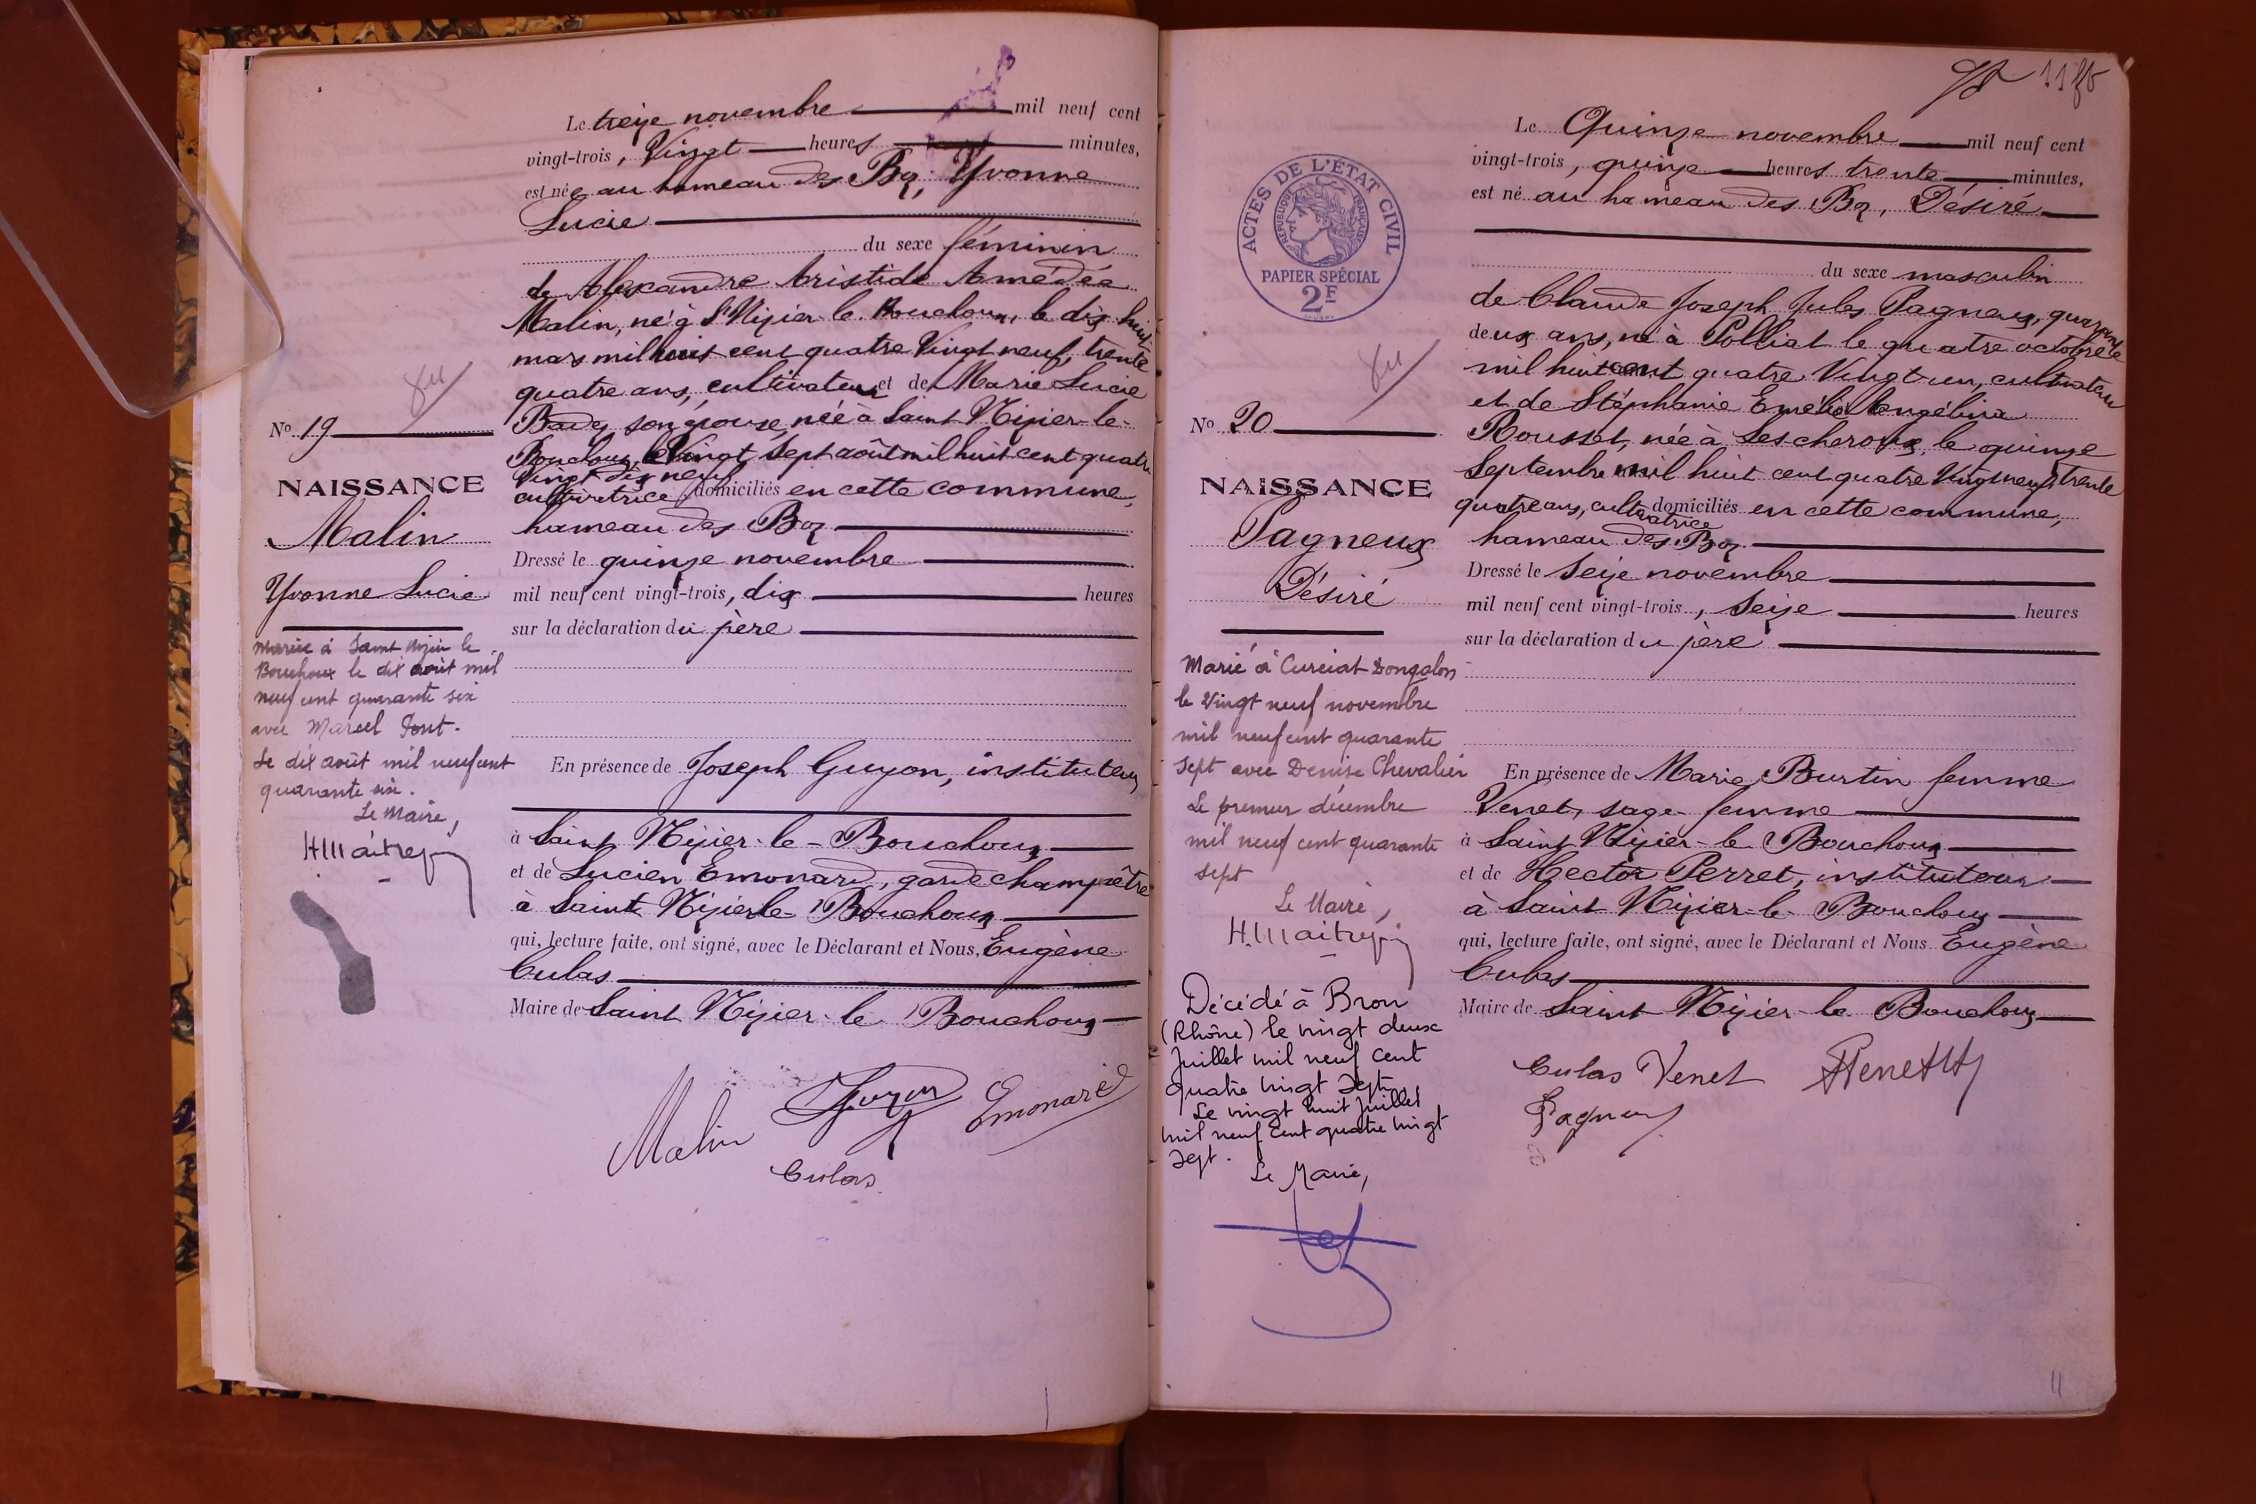 Le treize novembre mil neuf cent
vingt-trois, Vingt heures minutes,
est née au hameau des Boz, Yvonne
Lucie
du sexe féminin
de Alexandre Aristide Amédée
Malin, né à St Nizier le Bouchoux, le dix huit
mars mil huit cent quatre Vingt neuf, trente
quatre ans, cultivateur et de Marie Lucie
son épouse, née à Saint Nizier-le-
Bouchoux, le Vingt Sept août mil huit cent quatre
Vingt dix neuf
cultivatrice, domiciliés en cette commune,
hameau des Boz
Dressé le quinze novembre
mil neuf cent vingt-trois, dix heures
sur la déclaration du père
En présence de Joseph Guyon, instituteur
à Saint Nizier-le-Bouchoux
et de Lucien Emonard, garde champêtre
à Saint Nizier le Bouchoux
qui, lecture faite, ont signé, avec le Déclarant et Nous, Eugène
Culas
Maire de Saint Nizier-le Bouchoux
Malin Guyon Emonard
Culas
No 19
NAISSANCE
Malin
Yvonne Lucie
Mariée à Saint Nizier le
Bouchoux le dix août mil
neuf cent quarante six
avec Marcel Font.
Le dix août mil neuf cent
quarante six.
Le Maire,
H Maitrepi
11
Le Quinze novembre mil neuf cent
vingt-trois, quinze heures trente minutes,
est né au hameau des Boz, Désiré
du sexe masculin
de Claude Joseph Jules Pagneux, quarante
deux ans, né à Polliat le quatre octobre
mil huit cent quatre Vingt un, cultivateur
et de Stéphanie Emélie Angélina
Rousset, née à Lescheroux, le quinze
Septembre mil huit cent quatre Vingt neuf, trente
quatre ans, cultivatrice domiciliés en cette commune,
hameau des Boz
Dressé le Seize novembre
mil neuf cent vingt-trois, Seize heures
sur la déclaration du père
En présence de Marie Burtin femme
Venet, sage-femme
à Saint Nizier-le Bouchoux
et de Hector Perret, instituteur
à Saint Nizier-le-Bouchoux
qui, lecture faite, ont signé, avec le Déclarant et Nous Eugène
Culas
Maire de Saint Nizier-le Bouchoux
Culas Venet
Pagneux
ACTES DE L'ÉTAT CIVIL
RÉPUBLIQUE FRANÇAISE
PAPIER SPÉCIAL
2F
No 20
NAISSANCE
Pagneux
Désiré
Marié à Curciat Dongalon
le Vingt neuf novembre
mil neuf cent quarante
sept avec Denise Chevalier
Le premier décembre
mil neuf cent quarante
sept
Le Maire,
H. Maitrepi
Décédé à Bron
(Rhône) le vingt deux
Juillet mil neuf cent
quatre vingt sept
Le vingt huit Juillet
mil neuf cent quatre vingt
sept.
Le Maire,
11